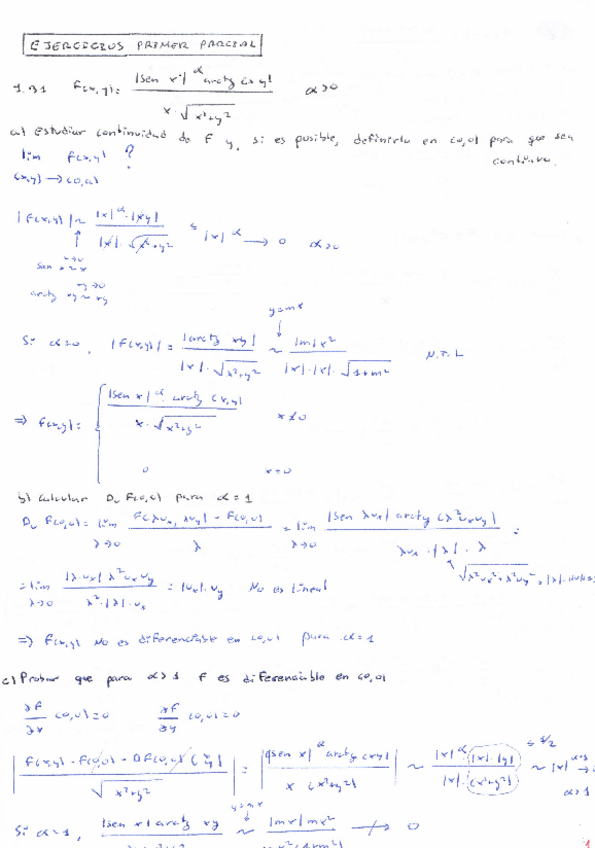 EJERCICIOS PRIMER PARCIAL
1.31 F(x,y) = |sen x|^α arctg (xy) / x·√(x²+y²) α>0
a) Estudiar continuidad de F y, si es posible, definirla en (0,0) para que sea continua.
lim F(x,y) ?
(x,y)→(0,0)
|F(x,y)| ~ |x|^α·|xy| / |x|·√(x²+y²) ≤ |x|^α → 0 α>0
x→0
sen x ~ x
xy→0
arctg xy ~ xy
y=mx
Si α=0, |F(x,y)| = |arctg xy| / |x|·√(x²+y²) ~ |m|x² / |x|·|x|·√(1+m²)
⇒ F(x,y) = { |sen x|^α arctg (x,y) / x·√(x²+y²) x≠0
0 x=0
b) Calcular Dv F(0,0) para α=1
Dv F(0,0) = lim λ→0 F(λvx, λvy) - F(0,0) / λ = lim λ→0 |sen λvx| arctg (λ²vxvy) / λvx·|λ|·λ =
√(λ²vx²+λ²vy²) = |λ|
= lim λ→0 |λ·vx| λ²vxvy / λ²·|λ|·vx = |vx|·vy No es lineal
⇒ F(x,y) No es diferenciable en (0,0) para α=1
c) Probar que para α>1 F es diferenciable en (0,0)
∂F/∂x (0,0)=0 ∂F/∂y (0,0)=0
| F(x,y) - F(0,0) - DF(0,0) (x y) / √(x²+y²) | = | |sen x|^α arctg (xy) / x (x²+y²) | ~ |x|^α |x|·|y| / |x|·(x²+y²) ≤ 1/2 ~ |x|^α-1 →
α>1
y=mx
Si α=1, |sen x| arctg xy ~ |mx|mx² ↛ 0
1